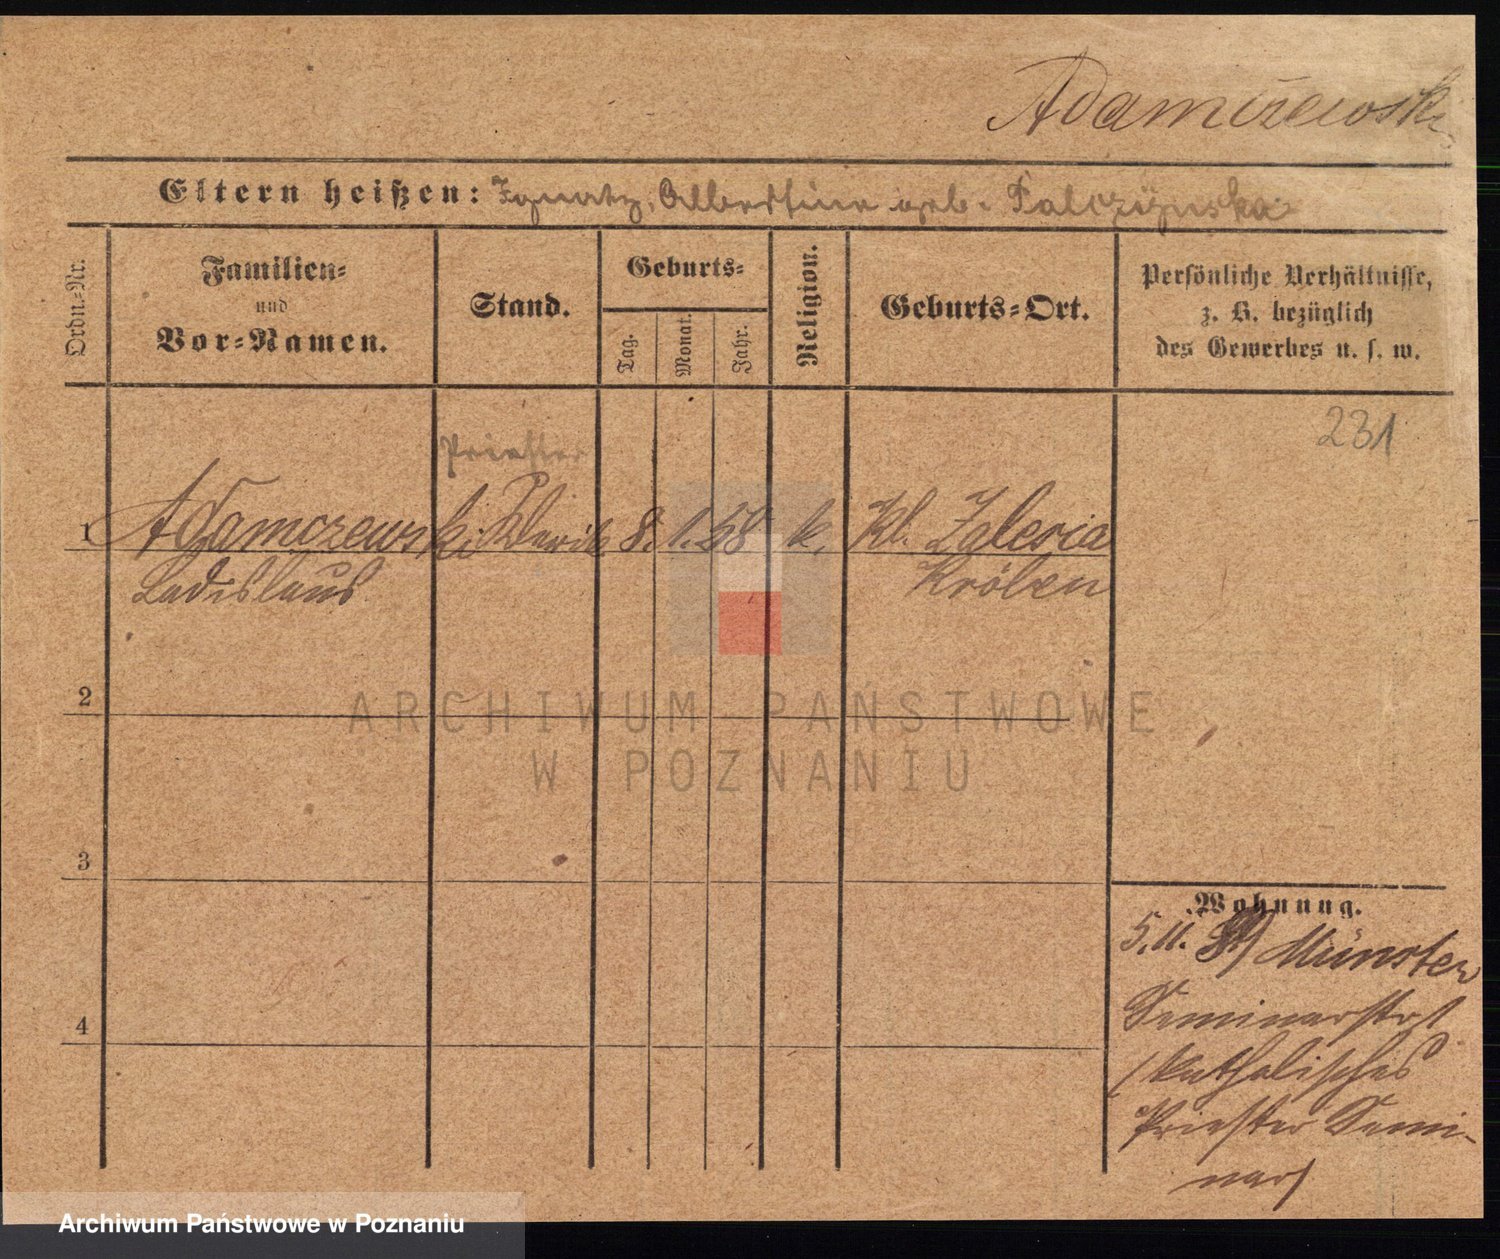 Adamczewski
Eltern heißen: Ignatz, Albertine geb. Falczynska
Ordn.-Nr.
Familien-
und
Vor-Namen.
Stand.
Geburts-
Tag.
Monat.
Jahr.
Religion.
Geburts-Ort.
Persönliche Verhältnisse,
z. B. bezüglich
des Gewerbes u. s. w.
231
Priester
1 Adamczewski Klerik 8. 1. 58 k. Kl. Zalesie
Ladislaus Kröben
2
3
4
Wohnung.
5. 11. Münster
Seminarstr 1
(katholisches
Priester Semi-
nar)
ARCHIWUM PAŃSTWOWE
W POZNANIU
Archiwum Państwowe w Poznaniu